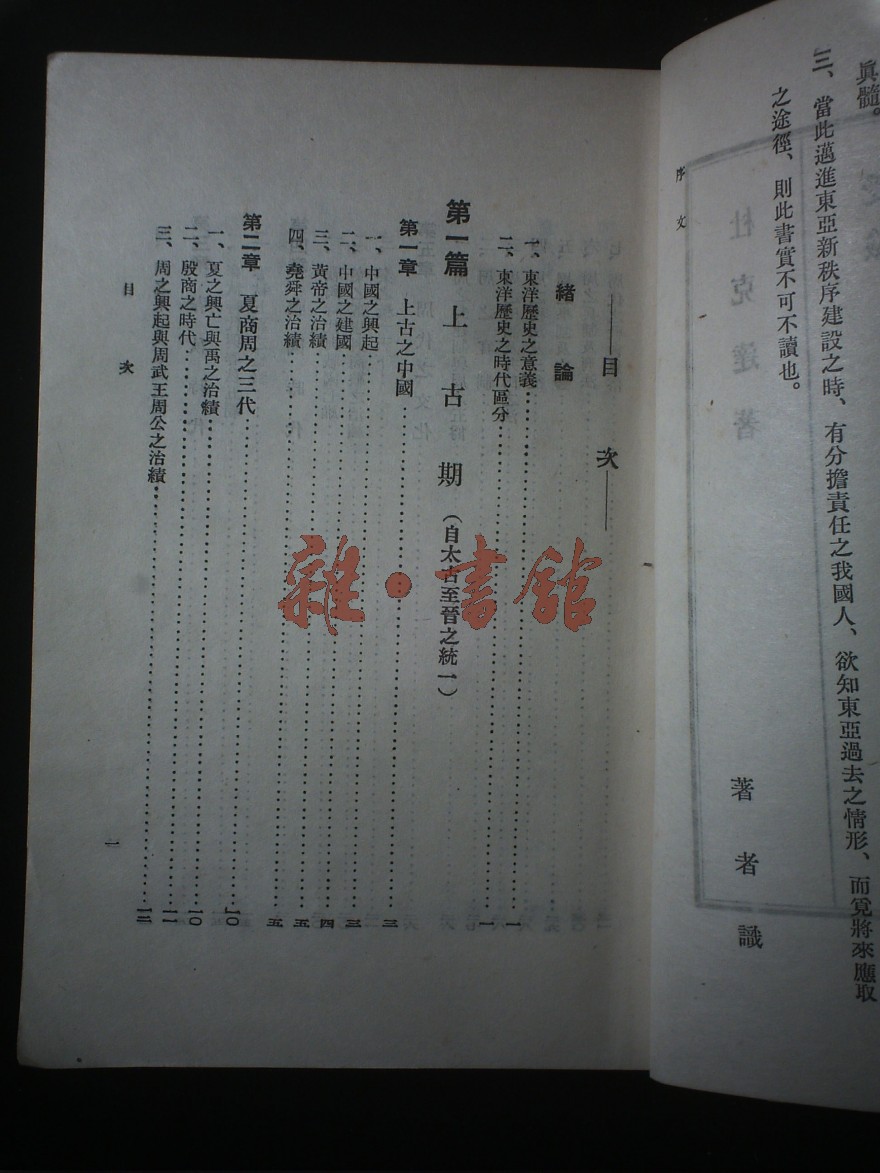 眞髓。
三、當此邁進東亞新秩序建設之時、有分擔責任之我國人、欲知東亞過去之情形、而覓將來應取
之途徑、則此書實不可不讀也。
著者識
序文
杜克達著
——目次——
緒論
一、東洋歷史之意義……一
二、東洋歷史之時代區分……一
第一篇 上古期（自太古至晉之統一）
第一章 上古之中國……三
一、中國之興起……三
二、中國之建國……四
三、黃帝之治績……五
四、堯舜之治績……五
第二章 夏商周之三代……一〇
一、夏之興亡與禹之治績……一〇
二、殷商之時代……一一
三、周之興起與周武王周公之治績……一二
目次
一
雜·書館